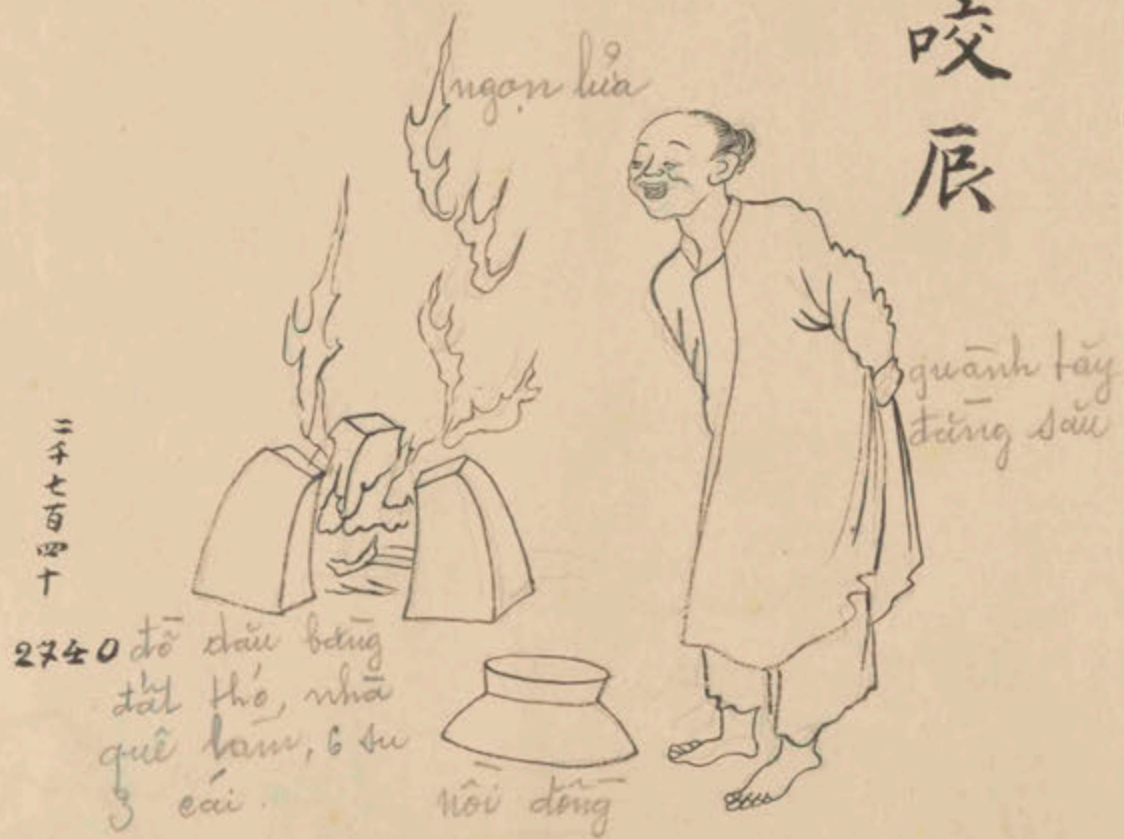 咬
辰
ngọn lửa
quành tăy
đằng său
二千七百四十
2740
đồ dău bằng
đất thó, nhà
quê làm, 6 su
3 cái.
nồi đồng